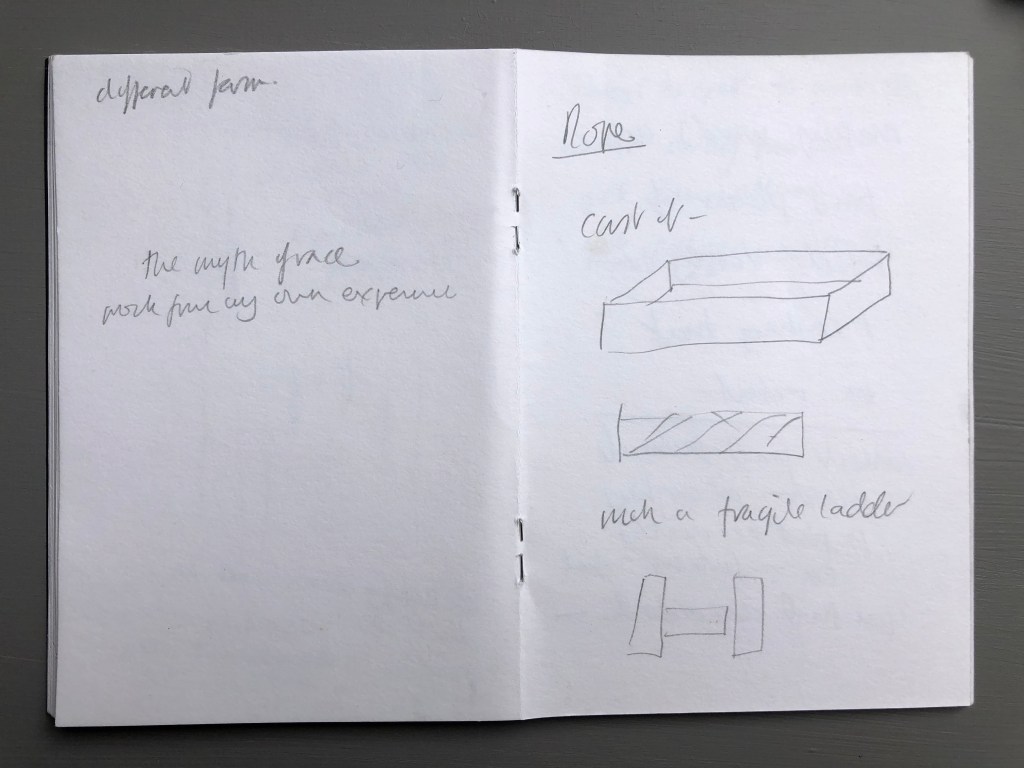 different form.
the myth of race
work from my own experience
Rope
cast it -
make a fragile ladder